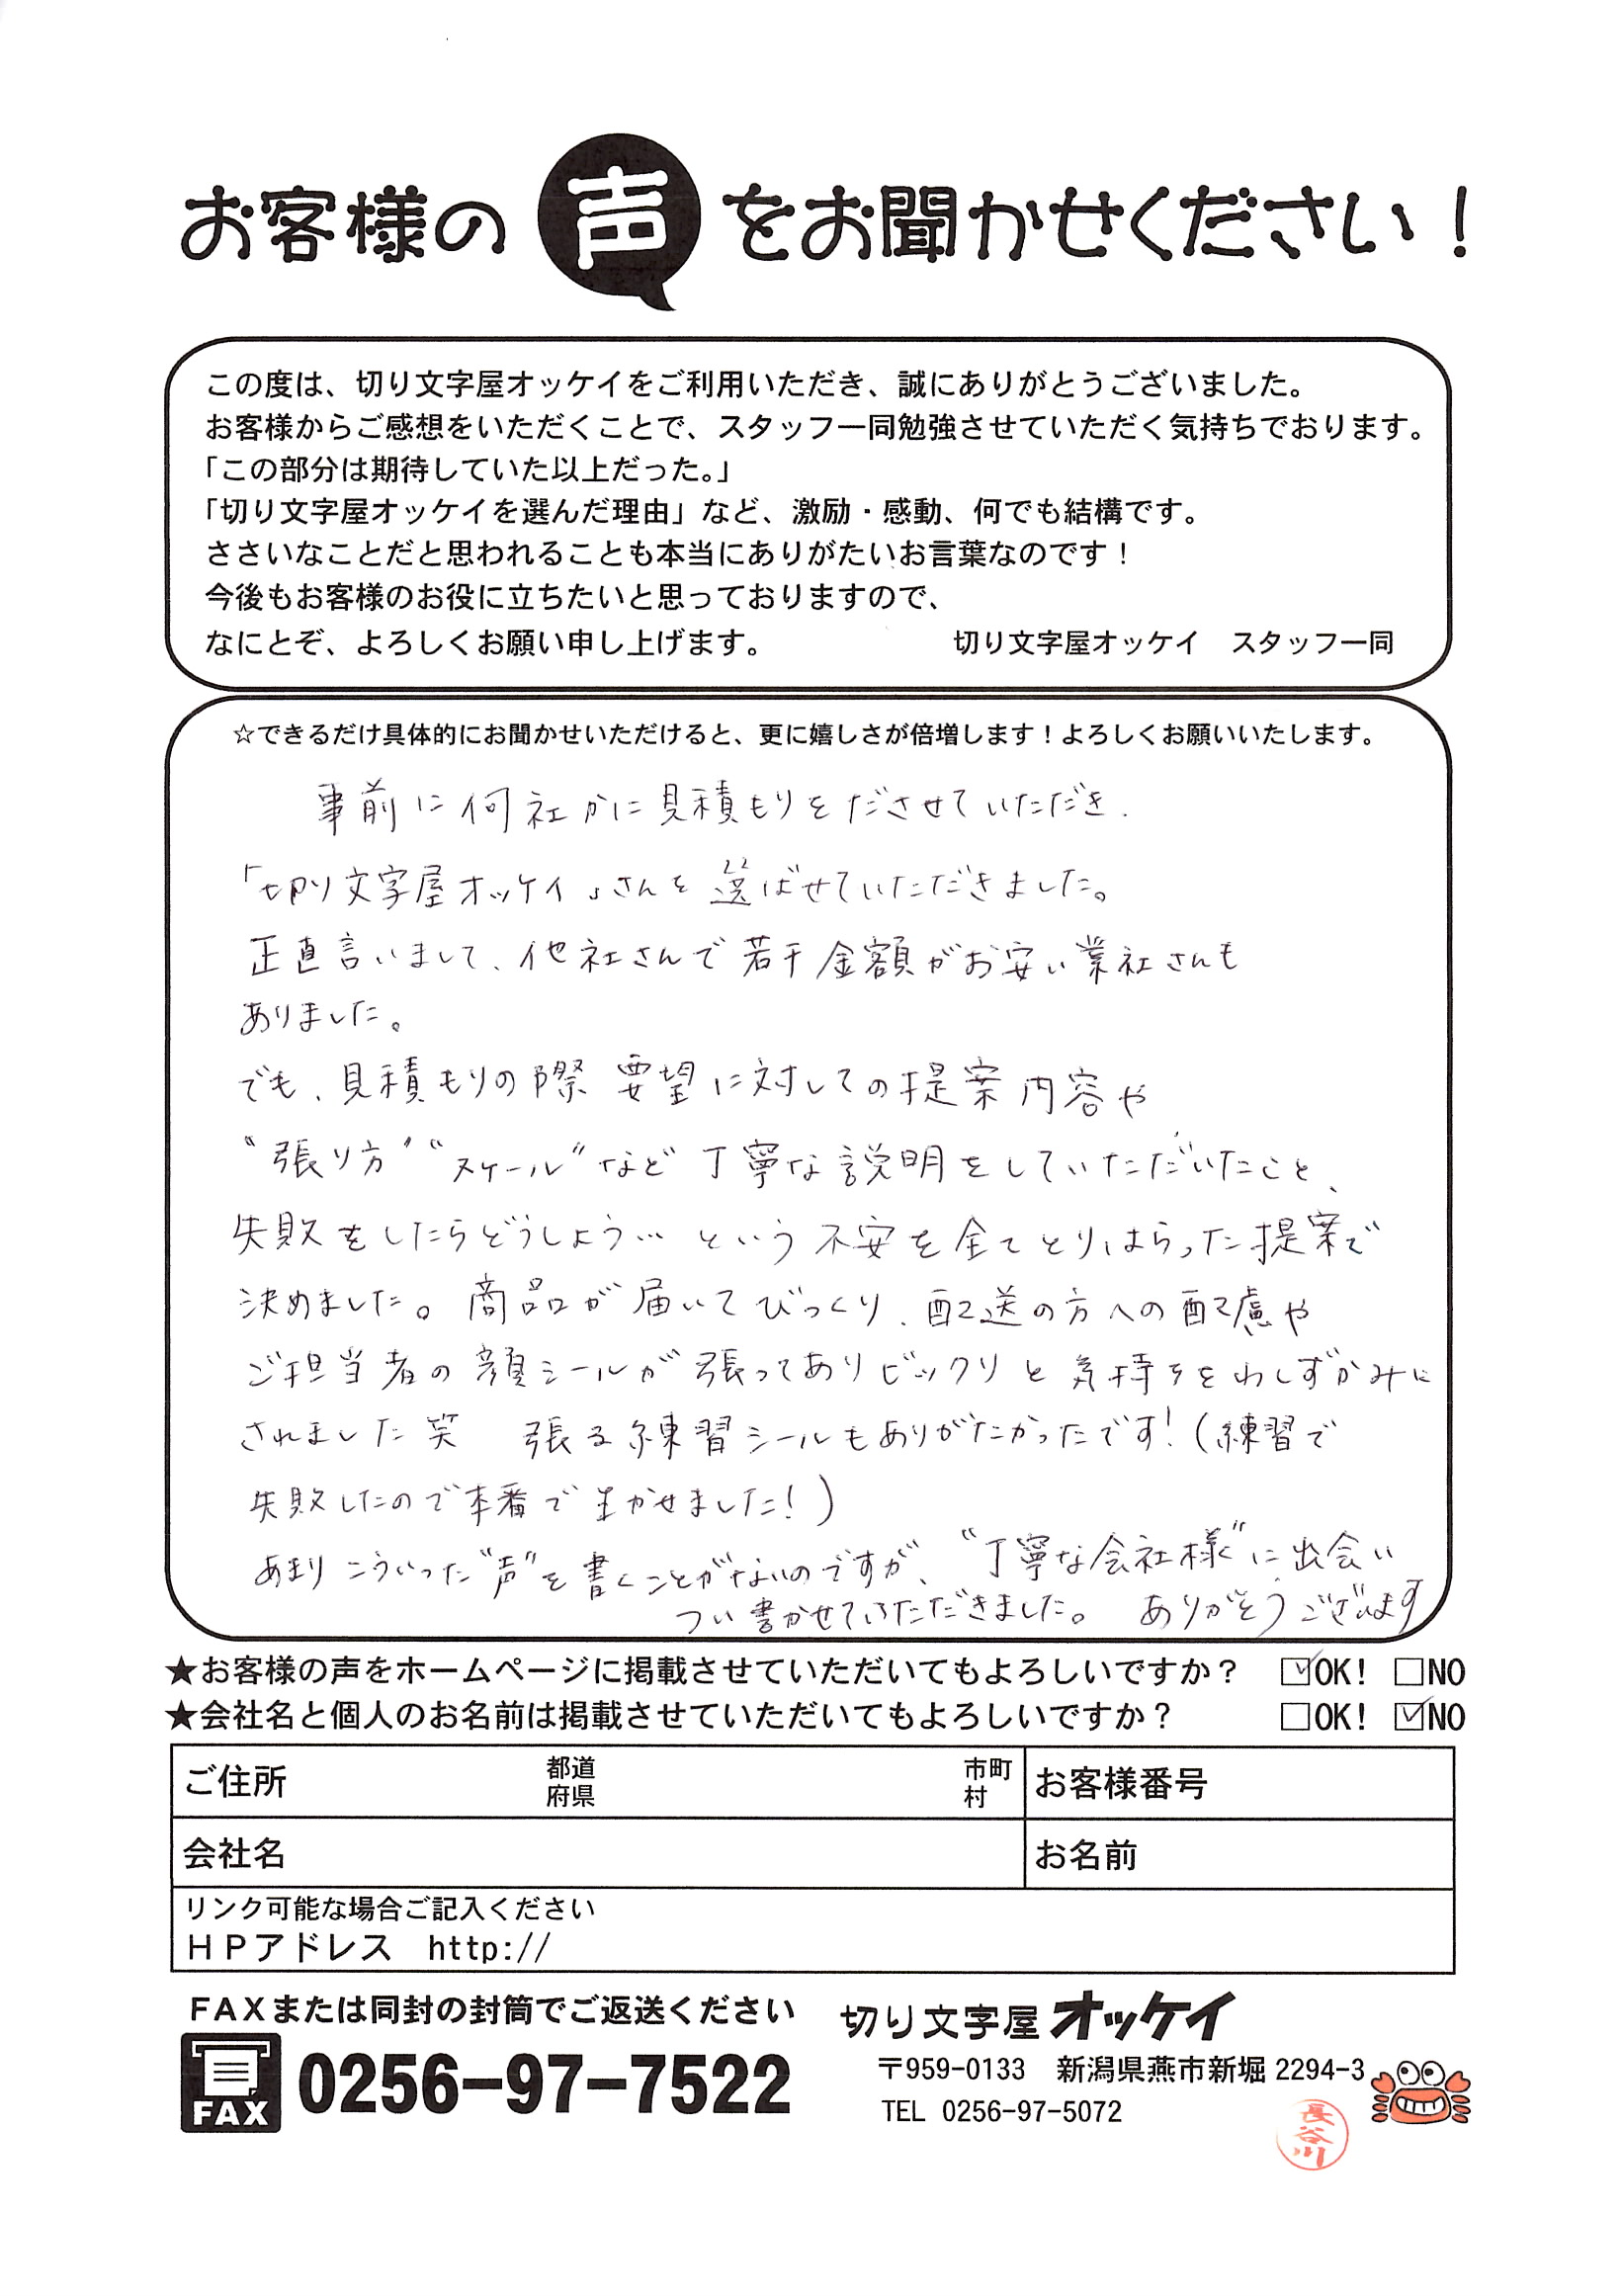 お客様の声をお聞かせください！
この度は、切り文字屋オッケイをご利用いただき、誠にありがとうございました。
お客様からご感想をいただくことで、スタッフ一同勉強させていただく気持ちでおります。
「この部分は期待していた以上だった。」
「切り文字屋オッケイを選んだ理由」など、激励・感動、何でも結構です。
ささいなことだと思われることも本当にありがたいお言葉なのです！
今後もお客様のお役に立ちたいと思っておりますので、
なにとぞ、よろしくお願い申し上げます。　切り文字屋オッケイ　スタッフ一同
☆できるだけ具体的にお聞かせいただけると、更に嬉しさが倍増します！よろしくお願いいたします。
事前に何社かに見積もりをださせていただき、
「切り文字屋オッケイ」さんを選ばせていただきました。
正直言いまして、他社さんで若干金額がお安い業社さんも
ありました。
でも、見積もりの際 要望に対しての提案内容や
〝張り方〟〝スケール〟など丁寧な説明をしていただいたこと、
失敗をしたらどうしよう… という不安を全てとりはらった提案で
決めました。商品が届いてびっくり、配送の方への配慮や
ご担当者の顔シールが張ってありビックリと気持ちをわしずかみに
されました笑　張る練習シールもありがたかったです！（練習で
失敗したので本番で生かせました！）
あまりこういった〝声〟を書くことがないのですが、〝丁寧な会社様〟に出会い
つい書かせていただきました。　ありがとうございます
★お客様の声をホームページに掲載させていただいてもよろしいですか？　☑OK!　□NO
★会社名と個人のお名前は掲載させていただいてもよろしいですか？　□OK!　☑NO
ご住所　都道府県　市町村　お客様番号
会社名　お名前
リンク可能な場合ご記入ください
ＨＰアドレス　http://
ＦＡＸまたは同封の封筒でご返送ください
FAX 0256-97-7522
切り文字屋オッケイ
〒959-0133　新潟県燕市新堀 2294-3
TEL 0256-97-5072
長谷川